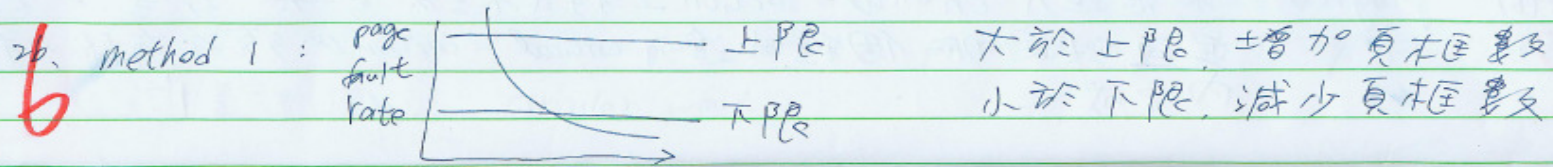 6
20. method 1 : page fault rate 上限 大於上限, 增加頁框數
下限 小於下限, 減少頁框數